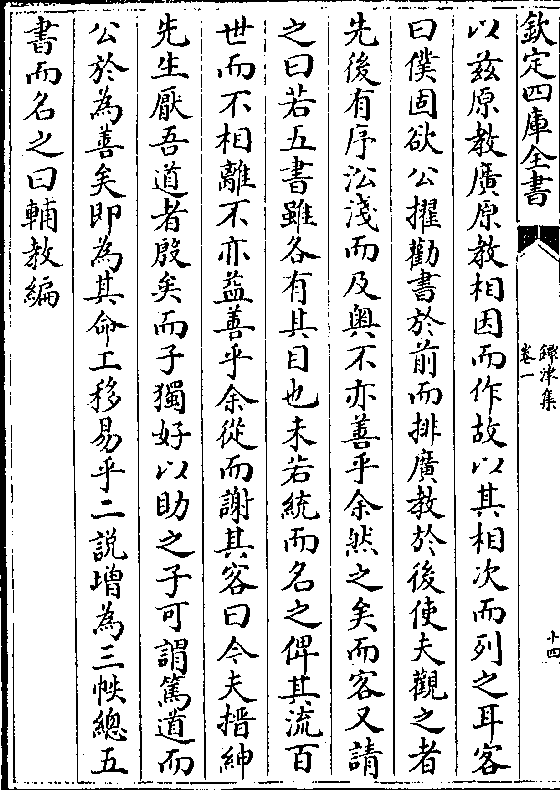 欽定四庫全書
鐔津集
卷一
十四
以兹原教廣原教相因而作故以其相次而列之耳客
曰僕固欲公擢勸書於前而排廣教於後使夫觀之者
先後有序㳂淺而及奥不亦善乎余然之矣而客又請
之曰若五書雖各有其目也未若統而名之俾其流百
世而不相離不亦益善乎余從而謝其客曰今夫搢紳
先生厭吾道者殷矣而子獨好以助之子可謂篤道而
公於為善矣即為其命工移易乎二說増為三帙總五
書而名之曰輔教編